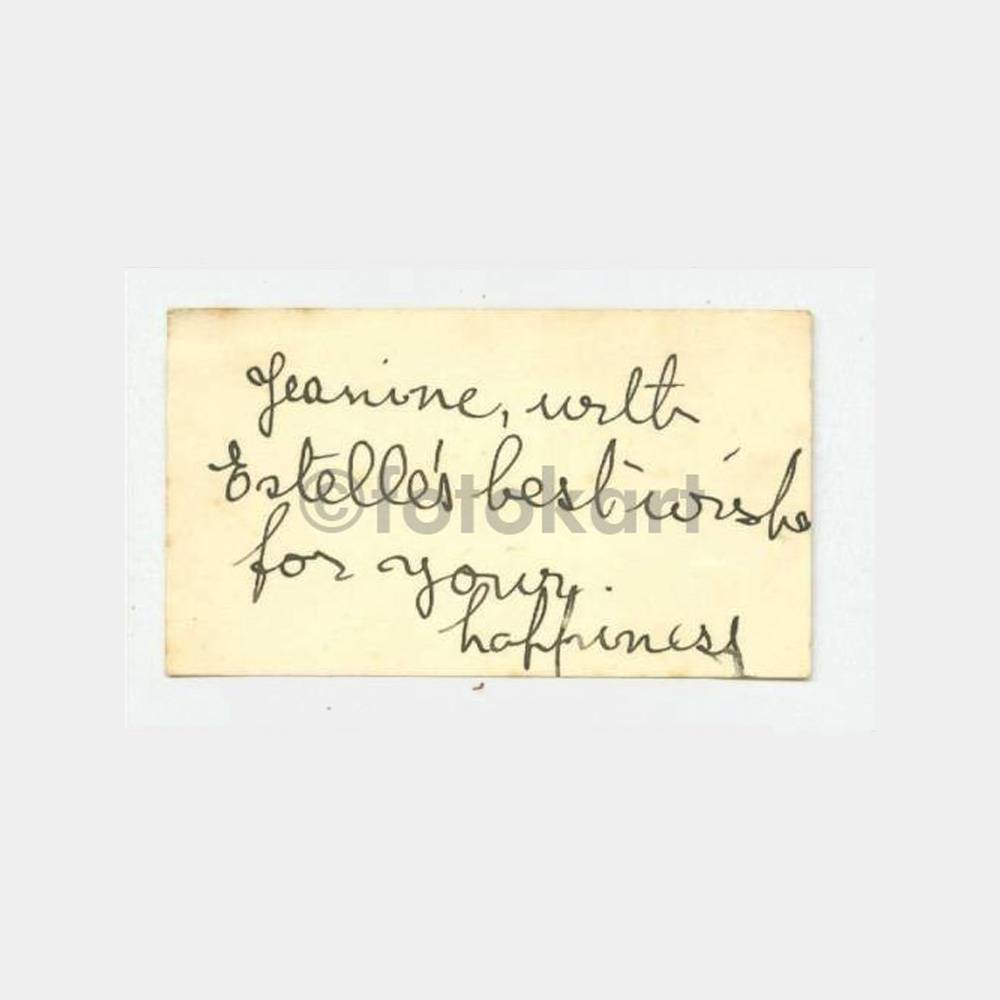 Jeanine, with
Estelle's best wishe
for your
happiness
©fotokart